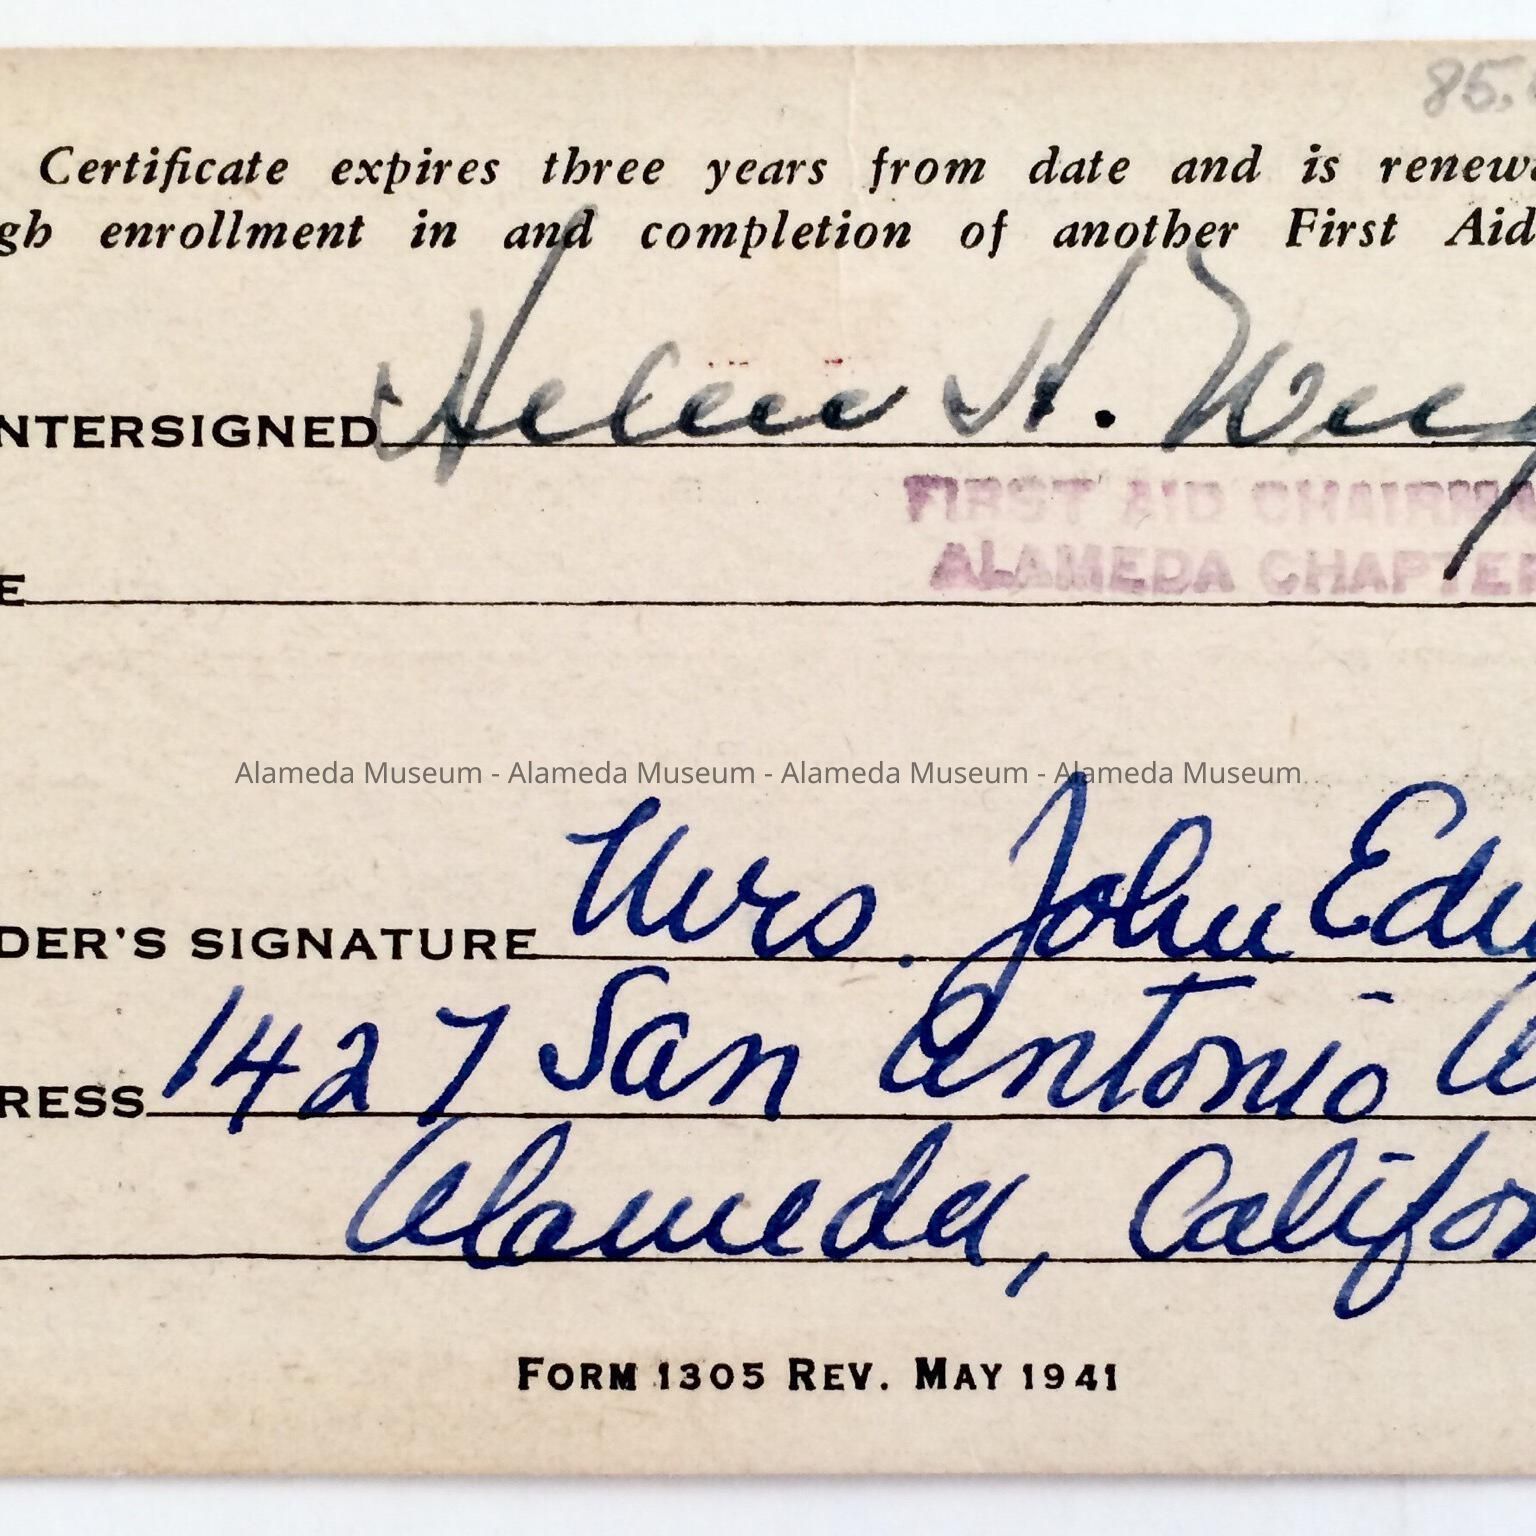 85.
Certificate expires three years from date and is renewa
gh enrollment in and completion of another First Aid
NTERSIGNED Helen H.
FIRST AID CHAIRMA
ALAMEDA CHAPTER
E
Alameda Museum - Alameda Museum - Alameda Museum - Alameda Museum
DER'S SIGNATURE Mrs. John Edw
RESS 1427 San Antonio A
Alameda, Califor
FORM 1305 REV. MAY 1941